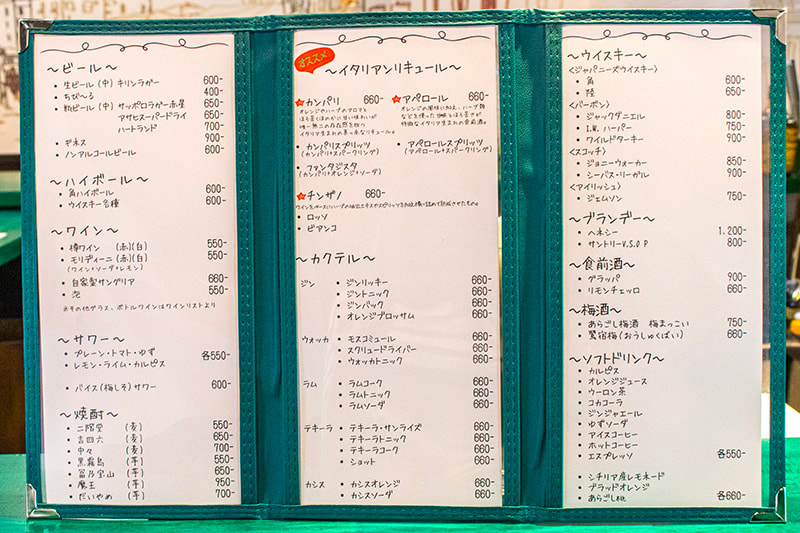 〜ビール〜
・生ビール(中) キリンラガー 600-
・ちび〜る 400-
・瓶ビール(中) サッポロラガー赤星 650-
アサヒスーパードライ 650-
ハートランド 700-
・ギネス 900-
・ノンアルコールビール 600-
〜ハイボール〜
・角ハイボール 600-
・ウイスキー各種 600-
〜ワイン〜
・樽ワイン (赤)(白) 550-
・モリディーニ(赤)(白) 550-
(ワイン+ソーダ+レモン)
・自家製サングリア 660-
・泡 550-
※その他グラス、ボトルワインはワインリストより
〜サワー〜
・プレーン・トマト・ゆず 各550-
・レモン・ライム・カルピス
・バイス(梅しそ)サワー 600-
〜焼酎〜
・二階堂 (麦) 550-
・吉四六 (麦) 650-
・中々 (麦) 700-
・黒霧島 (芋) 550-
・冨乃宝山 (芋) 650-
・魔王 (芋) 950-
・だいやめ (芋) 700-
オススメ
〜イタリアンリキュール〜
カンパリ 660-
オレンジやハーブのアロマと
ほろ苦くほのかに甘い味わいが
唯一無二の存在感を放つ
イタリア生まれの真っ赤なリキュール。
・カンパリスプリッツ
(カンパリ+スパークリング)
・ファンタジスタ
(カンパリ+オレンジ+ソーダ)
アペロール 660-
・アペロールスプリッツ
(アペロール+スパークリング)
チンザノ 660-
・ロッソ
・ビアンコ
〜カクテル〜
ジン ・ジンリッキー 660-
・ジントニック 660-
・ジンバック 660-
・オレンジブロッサム 660-
ウォッカ ・モスコミュール 660-
・スクリュードライバー 660-
・ウォッカトニック 660-
ラム ・ラムコーク 660-
・ラムトニック 660-
・ラムソーダ 660-
テキーラ ・テキーラ・サンライズ 660-
・テキーラトニック 660-
・テキーラコーク 660-
・ショット 660-
カシス ・カシスオレンジ 660-
・カシスソーダ 660-
〜ウイスキー〜
<ジャパニーズウイスキー>
・角 600-
・陸 650-
<バーボン>
・ジャックダニエル 800-
・I.W.ハーパー 750-
・ワイルドターキー 900-
<スコッチ>
・ジョニーウォーカー 850-
・シーバス・リーガル 900-
<アイリッシュ>
・ジェムソン 750-
〜ブランデー〜
・ヘネシー 1,200-
・サントリーV.S.O.P 800-
〜食前酒〜
・グラッパ 900-
・リモンチェッロ 660-
〜梅酒〜
・あらごし梅酒 梅まっこい 750-
・鶯宿梅(おうしゅくばい) 660-
〜ソフトドリンク〜
・カルピス
・オレンジジュース
・ウーロン茶
・コカコーラ
・ジンジャエール
・ゆずソーダ
・アイスコーヒー
・ホットコーヒー
・エスプレッソ 各550-
・シチリア産レモネード
・ブラッドオレンジ
・あらごし桃 各660-